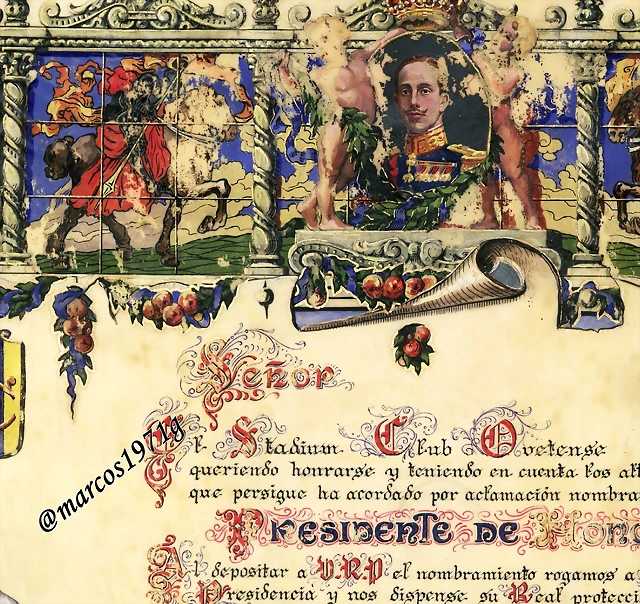 Señor
El Stadium Club Ovetense
queriendo honrarse y teniendo en cuenta los alt
que persigue ha acordado por aclamación nombra
PRESIDENTE DE HONO
Al depositar a V.R.P el nombramiento rogamos a
Presidencia y nos dispense su Real protecci
@marcos1971g